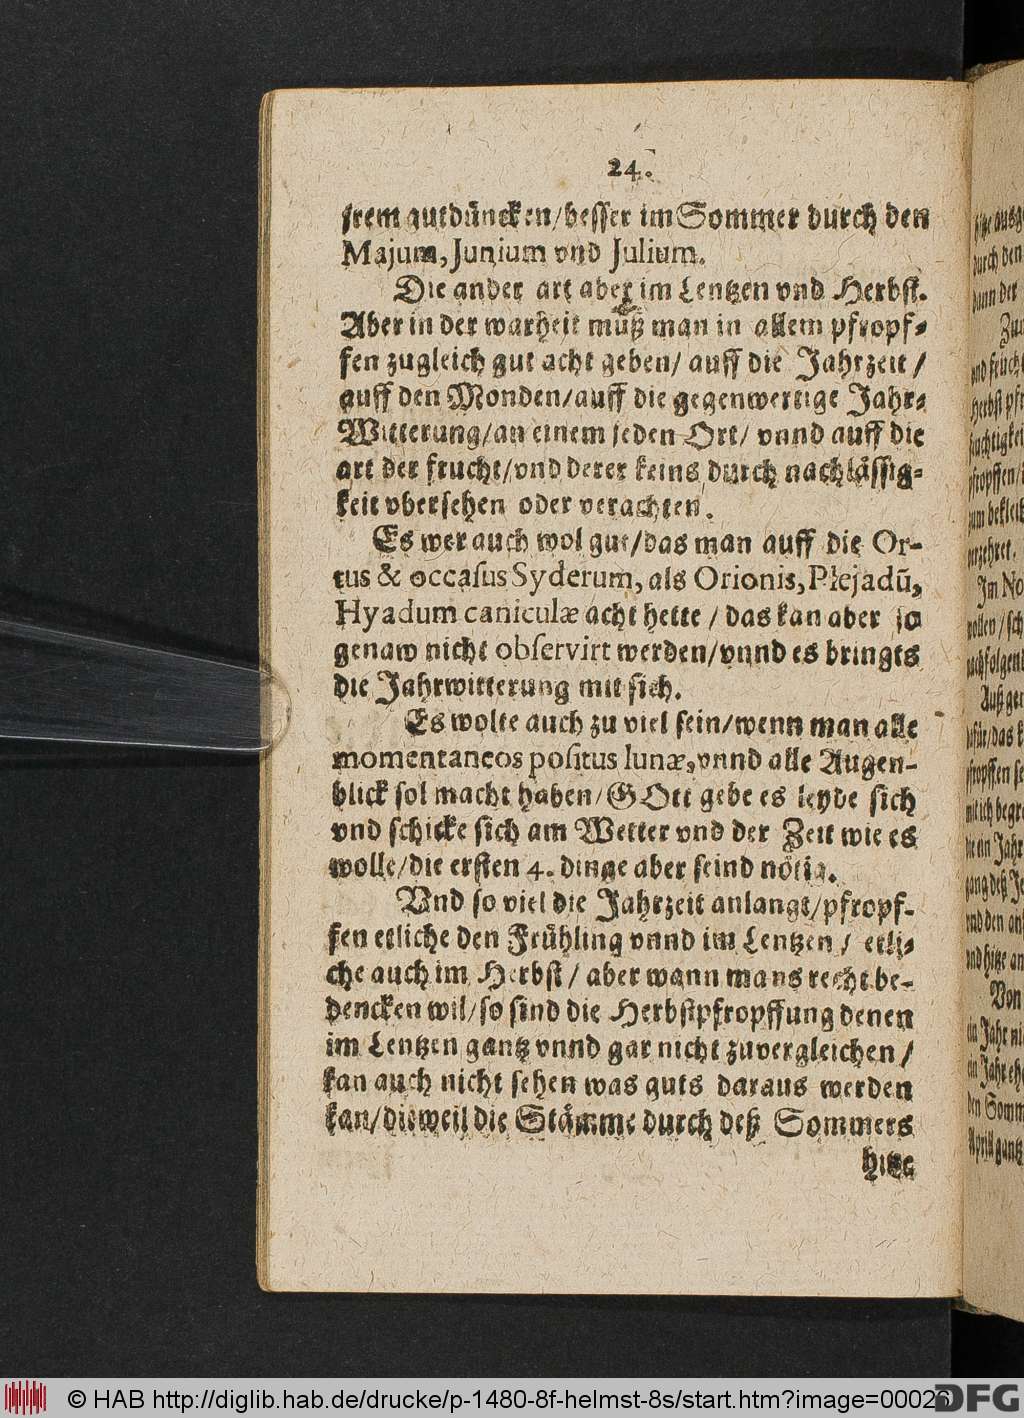 24.
srem gutdüncken/besser im Sommer durch den
Majum, Junium vnd Julium.
Die ander art aber im Lentzen vnd Herbst.
Aber in der warheit muß man in allem pfropf-
fen zugleich gut acht geben/ auff die Jahrzeit /
auff den Monden/auff die gegenwertige Jahr-
Witterung/an einem jeden Ort/ vnnd auff die
art der frucht/vnd derer keins durch nachlässig-
keit vbersehen oder verachten.
Es wer auch wol gut/das man auff die Or-
tus & occasus Syderum, als Orionis, Plejadũ,
Hyadum caniculæ acht hette / das kan aber so
genaw nicht observirt werden/vnnd es bringts
die Jahrwitterung mit sich.
Es wolte auch zu viel sein/wenn man alle
momentaneos positus lunæ, vnnd alle Augen-
blick sol macht haben/GOtt gebe es leyde sich
vnd schicke sich am Wetter vnd der Zeit wie es
wolle/die ersten 4. dinge aber seind nötig.
Vnd so viel die Jahrzeit anlangt/pfropf-
fen etliche den Frühling vnnd im Lentzen / etli-
che auch im Herbst / aber wann mans recht be-
dencken wil/so sind die Herbstpfropffung denen
im Lentzen gantz vnnd gar nicht zuvergleichen /
kan auch nicht sehen was guts daraus werden
kan/dieweil die Stämme durch deß Sommers
hitze
© HAB http://diglib.hab.de/drucke/p-1480-8f-helmst-8s/start.htm?image=00026
DFG